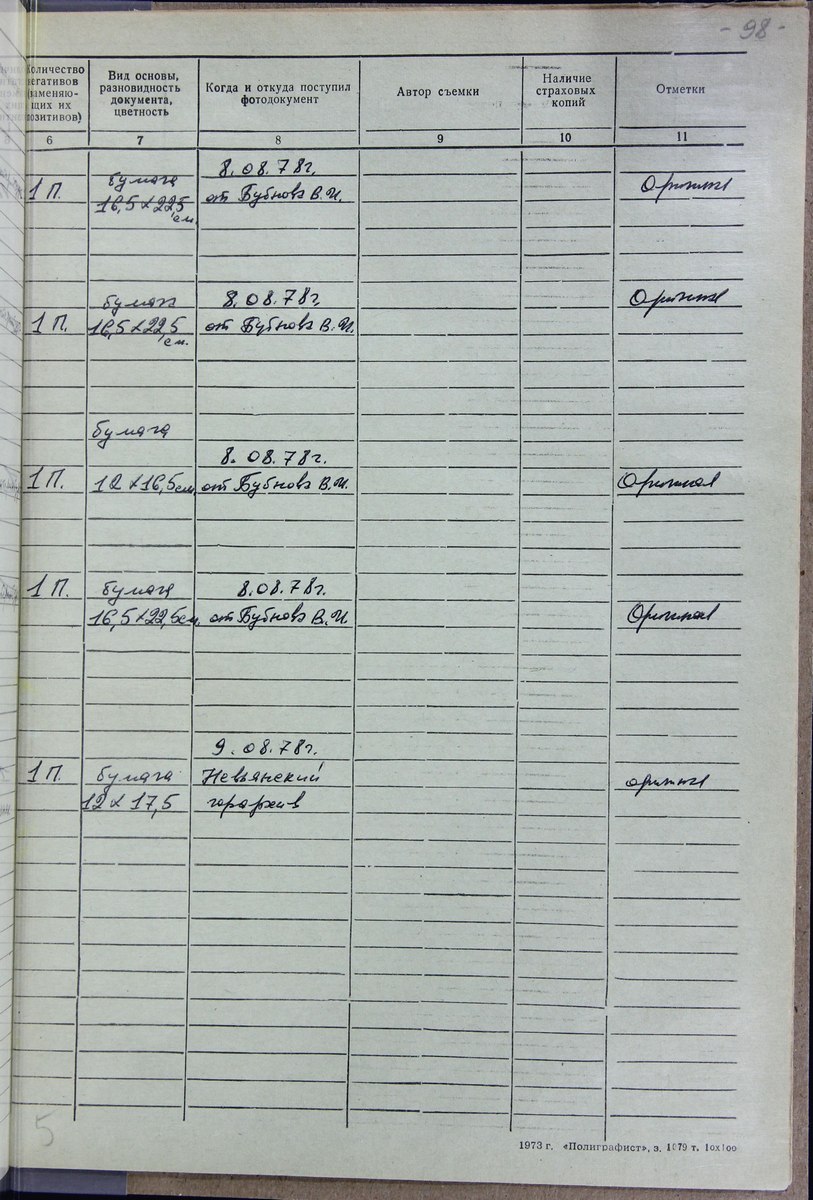 - 98 -
Количество
негативов
(заменяю-
щих их
позитивов)
Вид основы,
разновидность
документа,
цветность
Когда и откуда поступил
фотодокумент
Автор съемки
Наличие
страховых
копий
Отметки
6 7 8 9 10 11
8.08.78г.
1 П. бумага от Бубнова В.И.
16,5 х 22,5
см.
бумага 8.08.78г.
1 П. 16,5 х 22,5 от Бубнова В.И.
см.
бумага
8.08.78г.
1 П. 12 х 16,5 см. от Бубнова В.И.
1 П. бумага 8.08.78г.
16,5 х 22,5 см. от Бубнова В.И.
9.08.78г.
1 П. бумага Невьянский
12 х 17,5 горархив
5
1973 г. «Полиграфист», з. 1079 т. 10х100